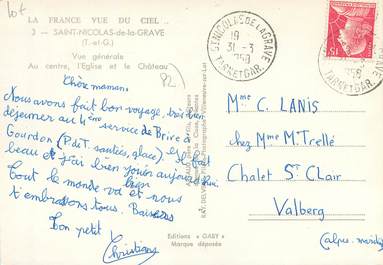 LA FRANCE VUE DU CIEL ..
3 - SAINT-NICOLAS-de-la-GRAVE
(T.-et-G.)
Vue générale
Au centre, l'Eglise et le Château
82
Chère maman.
Nous avons fait bon voyage, très bon
déjeuner au 4ème service de Brive à
Gourdon (P de T. sautées, glace). Il fait
beau et j'ai bien joué aujourd'hui
Tout le monde va bien et nous
t'embrassons tous. Baisers
Ton petit
Christian
Editions « GABY »
Marque déposée
ST NICOLAS DE LA GRAVE
19
31-3
1958
TARN ET GAR.
15F
Mme C. LANIS
chez Mme M. Trellé
Chalet St CLair
Valberg
(Alpes-maritimes)